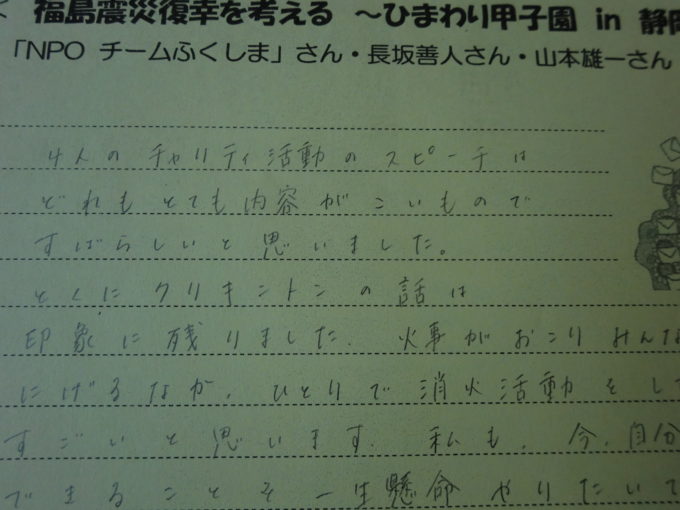 福島震災復幸を考える ～ひまわり甲子園 in 静岡
「NPO チームふくしま」さん・長坂善人さん・山本雄一さん
4人のチャリティ活動のスピーチは
どれもとても内容がこいもので
すばらしいと思いました。
とくにクリキントンの話は
印象に残りました。火事がおこりみんな
にげるなか、ひとりで消火活動をして
すごいと思います。私も、今、自分
できることを一生懸命やりたいで